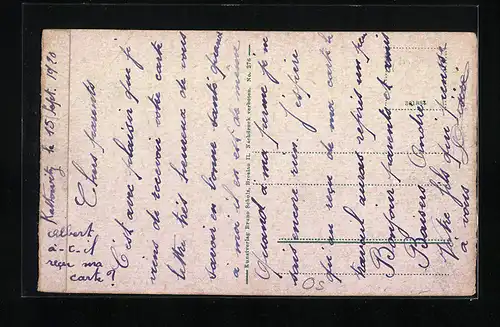 Kattowitz le 15 Sept. 1920
Chers parents
C'est avec plaisir que je
viens de recevoir votre carte
lettre très heureux de vous
savoir en bonne santé quand
a moi il en est de même
Quand à ma perme je ne
sais encore rien. J'espère
qu'au reçu de ma carte le
travail auras repris un peu
Bonjour parents et amis
Baisers André
Votre fils qui pense
à vous
Albert
a-t-il
reçu ma
carte?
Kunstverlag Bruno Scholz, Breslau II. Nachdruck verboten. No. 376
Os